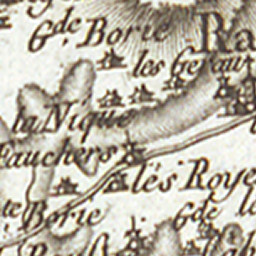 G.de Borie Ra
les Geraur
la Nique
Fauchers
lés Roye
te Borie G.de la